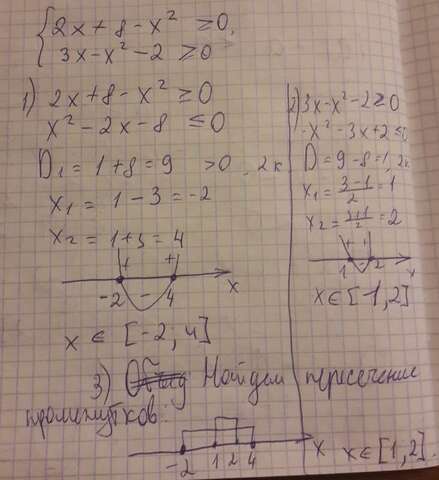 { 2x + 8 - x² ≥ 0,
3x - x² - 2 ≥ 0
1) 2x + 8 - x² ≥ 0
x² - 2x - 8 ≤ 0
D₁ = 1 + 8 = 9 > 0, 2к
x₁ = 1 - 3 = -2
x₂ = 1 + 3 = 4
+ - +
-2 4 x
x ∈ [-2; 4]
2) 3x - x² - 2 ≥ 0
x² - 3x + 2 ≤ 0
D = 9 - 8 = 1, 2к
x₁ = (3-1)/2 = 1
x₂ = (3+1)/2 = 2
+ - +
1 2 x
x ∈ [1, 2]
3) Найдем пересечение
промежутков:
-2 1 2 4 x x ∈ [1, 2].